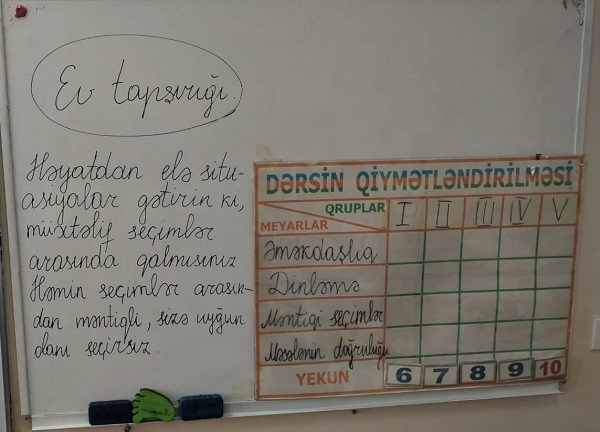 Ev tapşırığı.
Həyatdan elə situ-
asiyalar gətirin ki,
müxtəlif seçimlər
arasında qalmısınız
Həmin seçimlər arasın-
dan məntiqli, sizə uyğun
olanı seçirsiz.
DƏRSİN QİYMƏTLƏNDİRİLMƏSİ
QRUPLAR I II III IV V
MEYARLAR
Əməkdaşlıq
Dinləmə
Məntiqi seçimlər
Məsələnin doğruluğu
YEKUN 6 7 8 9 10